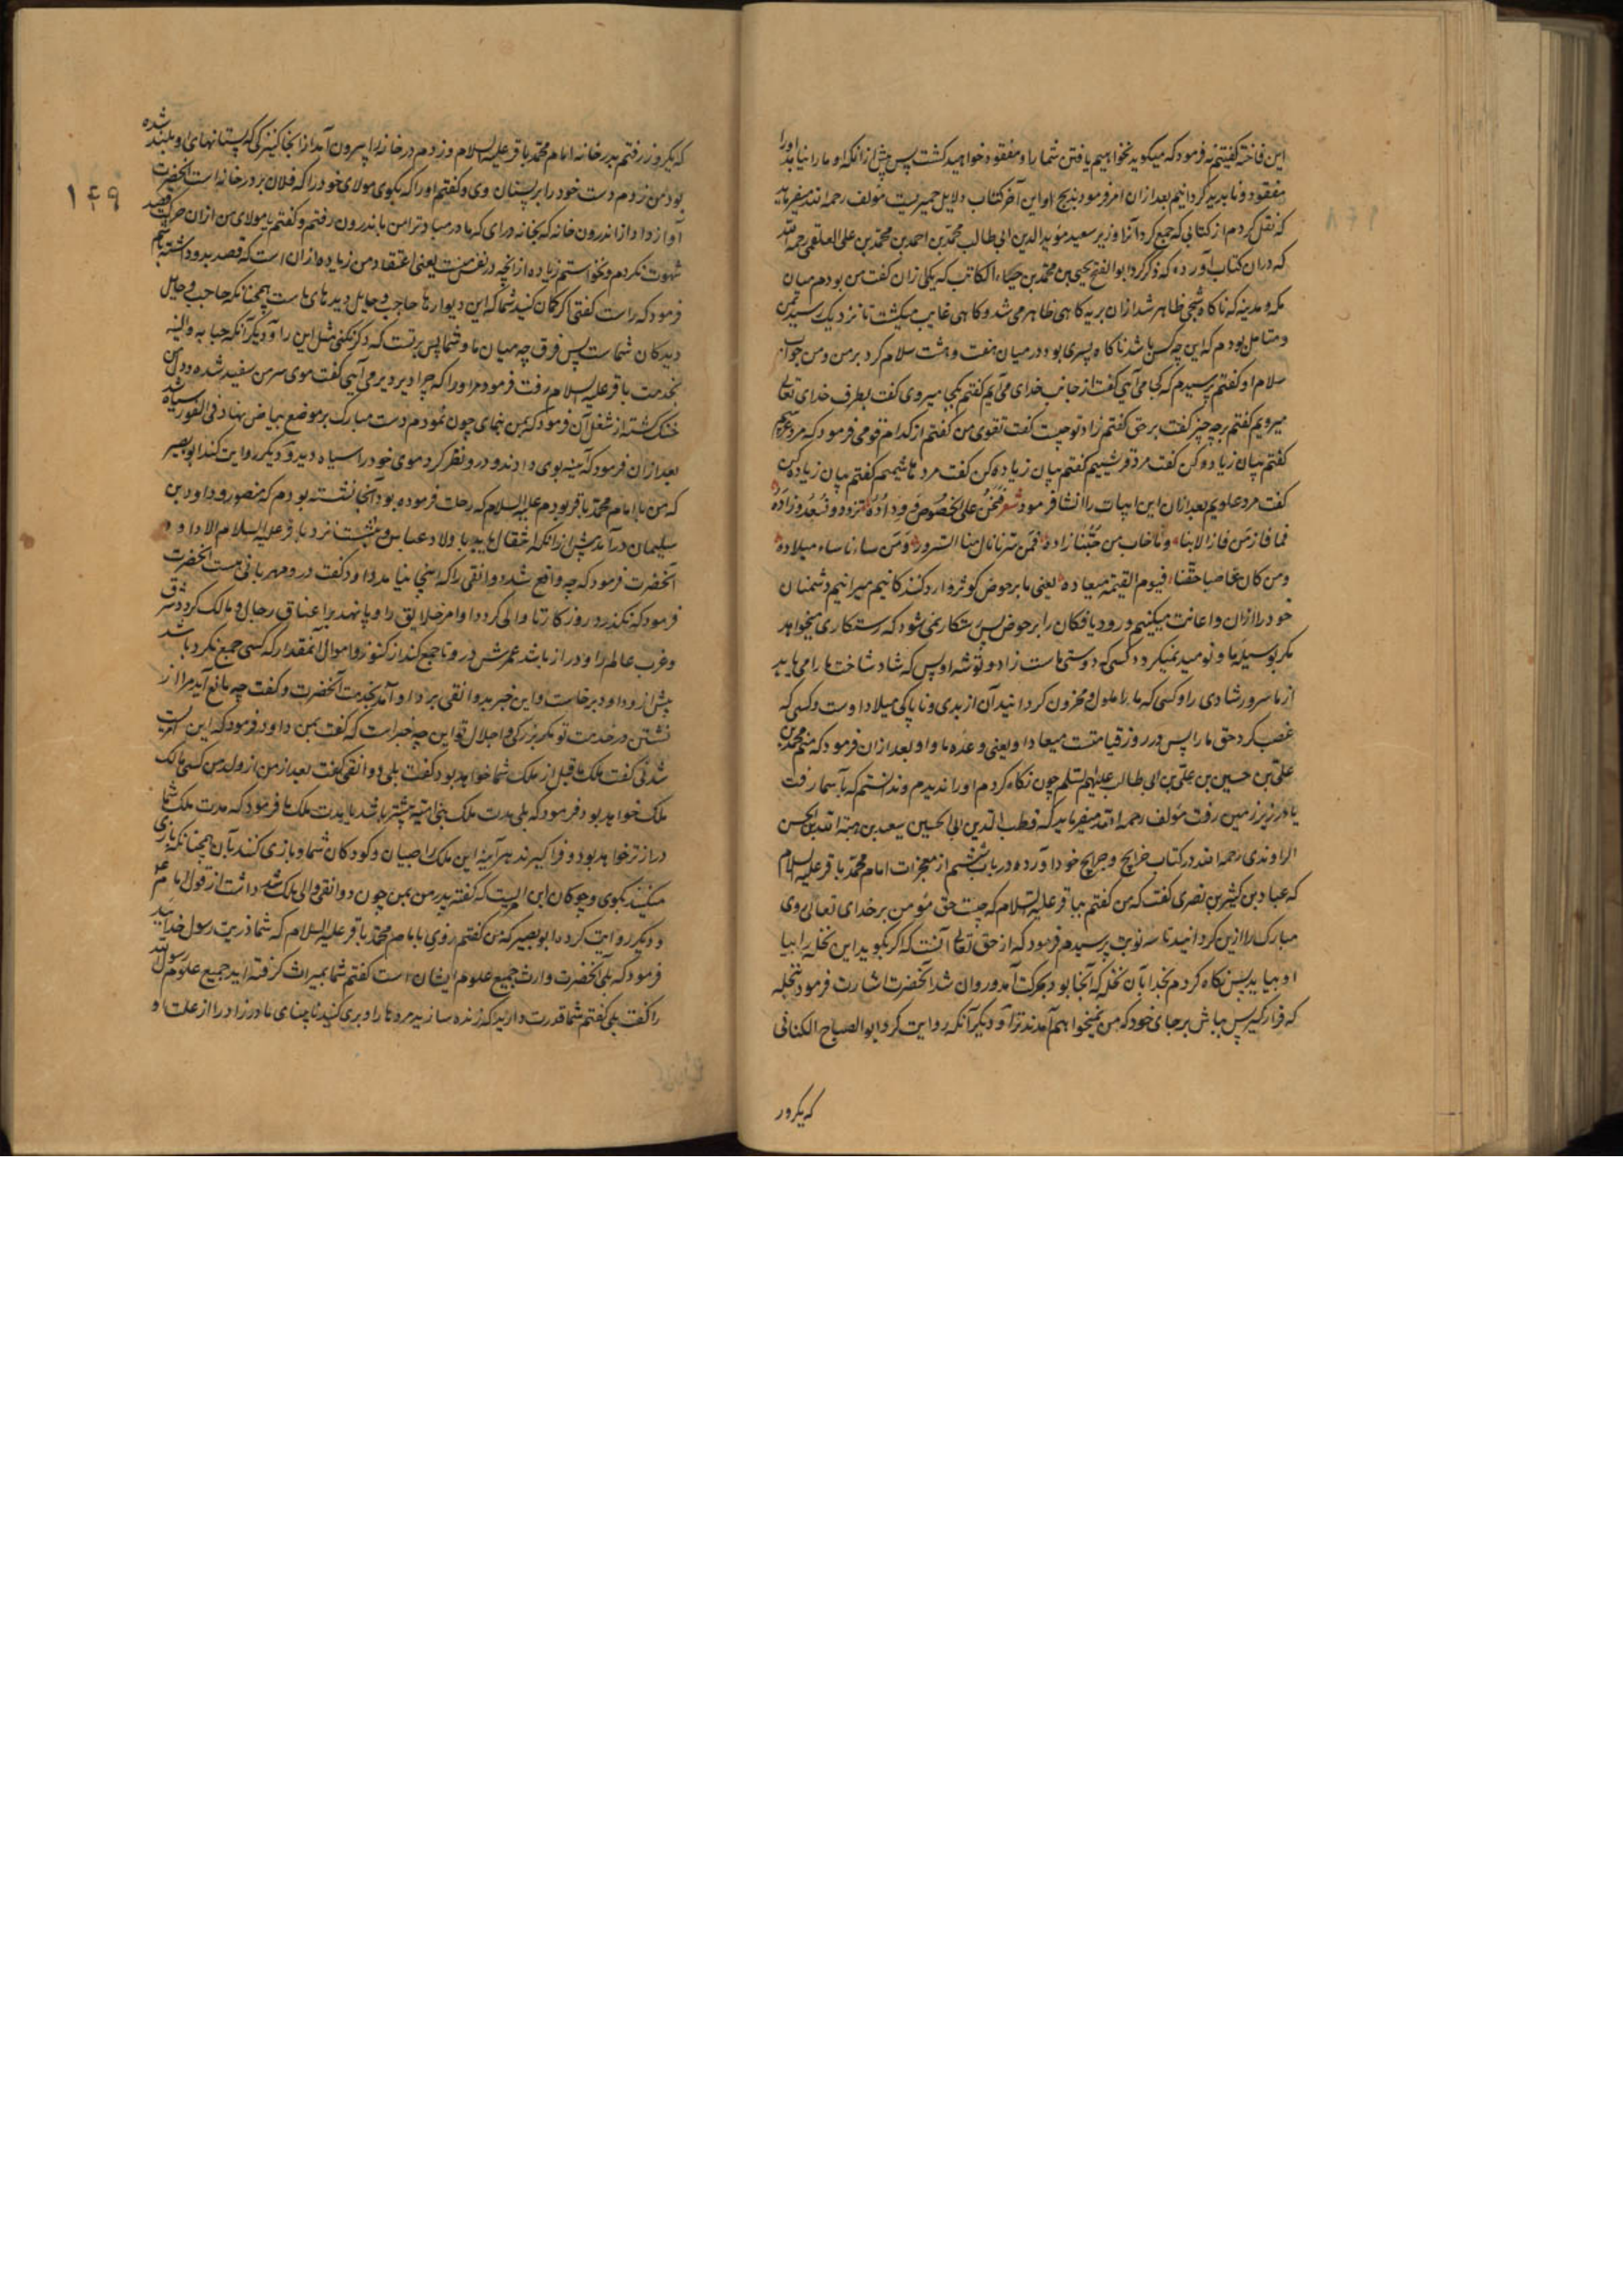 این فاخته گفتیم نه فرمود که میگوید نخواهیم یافتن شما را و مفقود خواهید کشت پس پیش ازانکه او ما را نیابد او را
مفقود و نابدید کردانیم بعد ازان امر فرمود بذبح او این آخر کتاب دلایل حمیریست مؤلف رحمه الله میفرماید
که نقل کردم از کتابی که جمع کرد آنرا وزیر سعید مؤید الدین ابی طالب محمد بن احمد بن محمد بن علی العلقمی رحمه الله
که دران کتاب آورده که ذکر کرد ابو الفتح یحیی بن محمد بن حیاء الکاتب که یکی ازان کفت من بودم میان
مکه و مدینه که ناکاه شبحی ظاهر شد ازان بریه کاهی ظاهر می شد و کاهی غایب میکشت تا نزدیک رسید بمن
و متامل بودم که این چه کس باشد ناکاه پسری بود در میان هفت و هشت سلام کرد بر من و من جواب
سلام او کفتم پرسیدم که از کجا می آیی کفت از جانب خدای می آیم کفتم بکجا میروی کفت بطرف خدای تعالی
میرویم کفتم بر چه چیز کفت بر حق کفتم زاد تو چیست کفت تقوی من کفتم از کدام قومی فرمود که مرد عربیم
کفتم بیان زیاده کن کفت مرد قرشییم کفتم بیان زیاده کن کفت مرد هاشمیم کفتم بیان زیاده کن
کفت مرد علویم بعد ازان این ابیات را انشا فرمود شعر فنحن علی الحوض روّاده تزود و نسعد ورّاده
فما فاز من فاز الا بنا و ما خاب من حبّنا زاده فمن سرّنا نال منا السرور و من ساءنا ساء میلاده
و من کان غاصبا حقّنا فیوم القیمة میعاده یعنی ما بر حوض کوثر وارد کنندکانیم میرانیم دشمنان
خود را ازان و اعانت میکنیم ورود یافکان را بر حوض پس رستکار نمی شود که رستکاری میخواهد
مکر بوسیلهٔ ما و نومید نمیکردد کسی که دوستی ماست زاد و توشه او پس که شاد ساخت ما را می یابد
از ما سرور شادی را و کسی که ما را ملول و محزون کردانید آن از بدی و ناپاکی میلاد اوست و کسی که
غصب کرد حق ما را پس در روز قیامتست میعاد او یعنی وعده ما و او بعد ازان فرمود که منم محمد بن
علی بن حسین بن علی بن ابی طالب علیهم السلام چون نکاه کردم او را ندیدم و ندانستم که بآسمان رفت
یا در زیر زمین رفت مؤلف رحمه الله میفرماید که قطب الدین ابی الحسین سعید بن هبة الله بن الحسن
الراوندی رحمه الله در کتاب خرایج و جرایح خود آورده در باب ششم از معجزات امام محمد باقر علیه السلام
که عباد بن کثیر بن بصری کفت که من کفتم بباقر علیه السلام که چیست حق مؤمن بر خدای تعالی روی
مبارک را ازین کردانید تا سه نوبت پرسیدم فرمود که از حق تعالی آنست که اکر بکوید این نخله را بیا
او بیاید پس نکاه کردم بخدا بآن نخله که آنجا بود بحرکت آمد و روان شد آنحضرت اشارت فرمود بنخله
که قرار کیر پس بباش بر جای خود که من نمیخواهم آمدن ترا و دیکر آنکه روایت کرد ابو الصباح الکنانی
که یکروز
۱۴۹
که یکروز رفتم بدر خانه امام محمد باقر علیه السلام و زدم در خانه را بیرون آمد از انجا کنیزکی که پستانهای او بلند شده
بود من زدم دست خود را بر پستان وی و کفتم او را که بکوی مولای خود را که فلان بر در خانه است آنحضرت
آواز داد از اندرون خانه که بخانه درای که مادر مباد ترا من باندرون رفتم و کفتم یا مولای من ازان حرکت قصد
شهوت نکردم و نخواستم زیاده از آنچه در نفس منست یعنی اعتقاد من زیاده ازان است که قصد بد داشته باشم
فرمود که راست کفتی اکر کمان کنید شما که این دیوارها حاجب و حایل دیدهای ماست همچنانکه حاجب و حایل
دیدکان شماست پس فرق چه میان ما و شما پس برتست که دکر نکنی مثل این را و دیکر آنکه حبابه والبیه
بخدمت باقر علیه السلام رفت فرمود مر او را که چرا دیر دیر می آیی کفت موی سر من سفید شده و دل من
خنک کشته از شغل آن فرمود که بمن بنمای چون نمودم دست مبارک بر موضع بیاض نهاد فی الفور سیاه شد
بعد ازان فرمود که آینه بوی دادند و درو نظر کرد موی خود را سیاه دید و دیکر روایت کند ابو بصیر
که من با امام محمد باقر بودم علیه السلام که رحلت فرموده بود آنجا نشسته بودم که منصور و داود بن
سلیمان در آمدند پیش ازانکه انتقال یابد باولاد عباس و ننشست نزد باقر علیه السلام الا داود
آنحضرت فرمود که چه واقع شد دوانقی را که اینجا نیامد داود کفت درو مهربانی نیست آنحضرت
فرمود که نکذرد روزکار تا والی کردد او امر خلایق را و پا نهد بر اعناق رجال و مالک کردد شرق
و غرب عالم را و دراز باشد عمرش درو تا جمع کند از کنوز و اموال آنمقدار که کسی جمع نکرده باشد
پیش ازو داود برخاست و این خبر بدوانقی برد او آمد بخدمت آنحضرت و کفت چه مانع آید مرا از
نشستن در خدمت تو مکر بزرکی و اجلال تو این چه خبر است که کفت بمن داود فرمود که این امریست
شدنی کفت ملک ما قبل از ملک شما خواهد بود کفت بلی دوانقی کفت بعد از من از ولد من کسی مالک
ملک خواهد بود فرمود که بلی مدت ملک بنی امیه بیشتر باشد یا مدت ملک ما فرمود که مدت ملک شما
درازتر خواهد بود و فرا کیرند هر آینه این ملک را صبیان و کودکان شما و بازی کنند بآن همچنانکه بازی
میکنند بکوی و چوکان این امریست که کفته پدر من بمن چون دوانقی والی ملک شد
و دیکر روایت کرد ابو بصیر که من کفتم روزی با امام محمد باقر علیه السلام که شما ذریت رسول خدایید
فرمود که بلی آنحضرت وارث جمیع علوم ایشان است کفتم شما بمیراث کرفته اید جمیع علوم رسول الله
را کفت بلی کفتم شما قدرت دارید که زنده سازید مرده را و بری کنید نابینای مادرزاد را از علت او